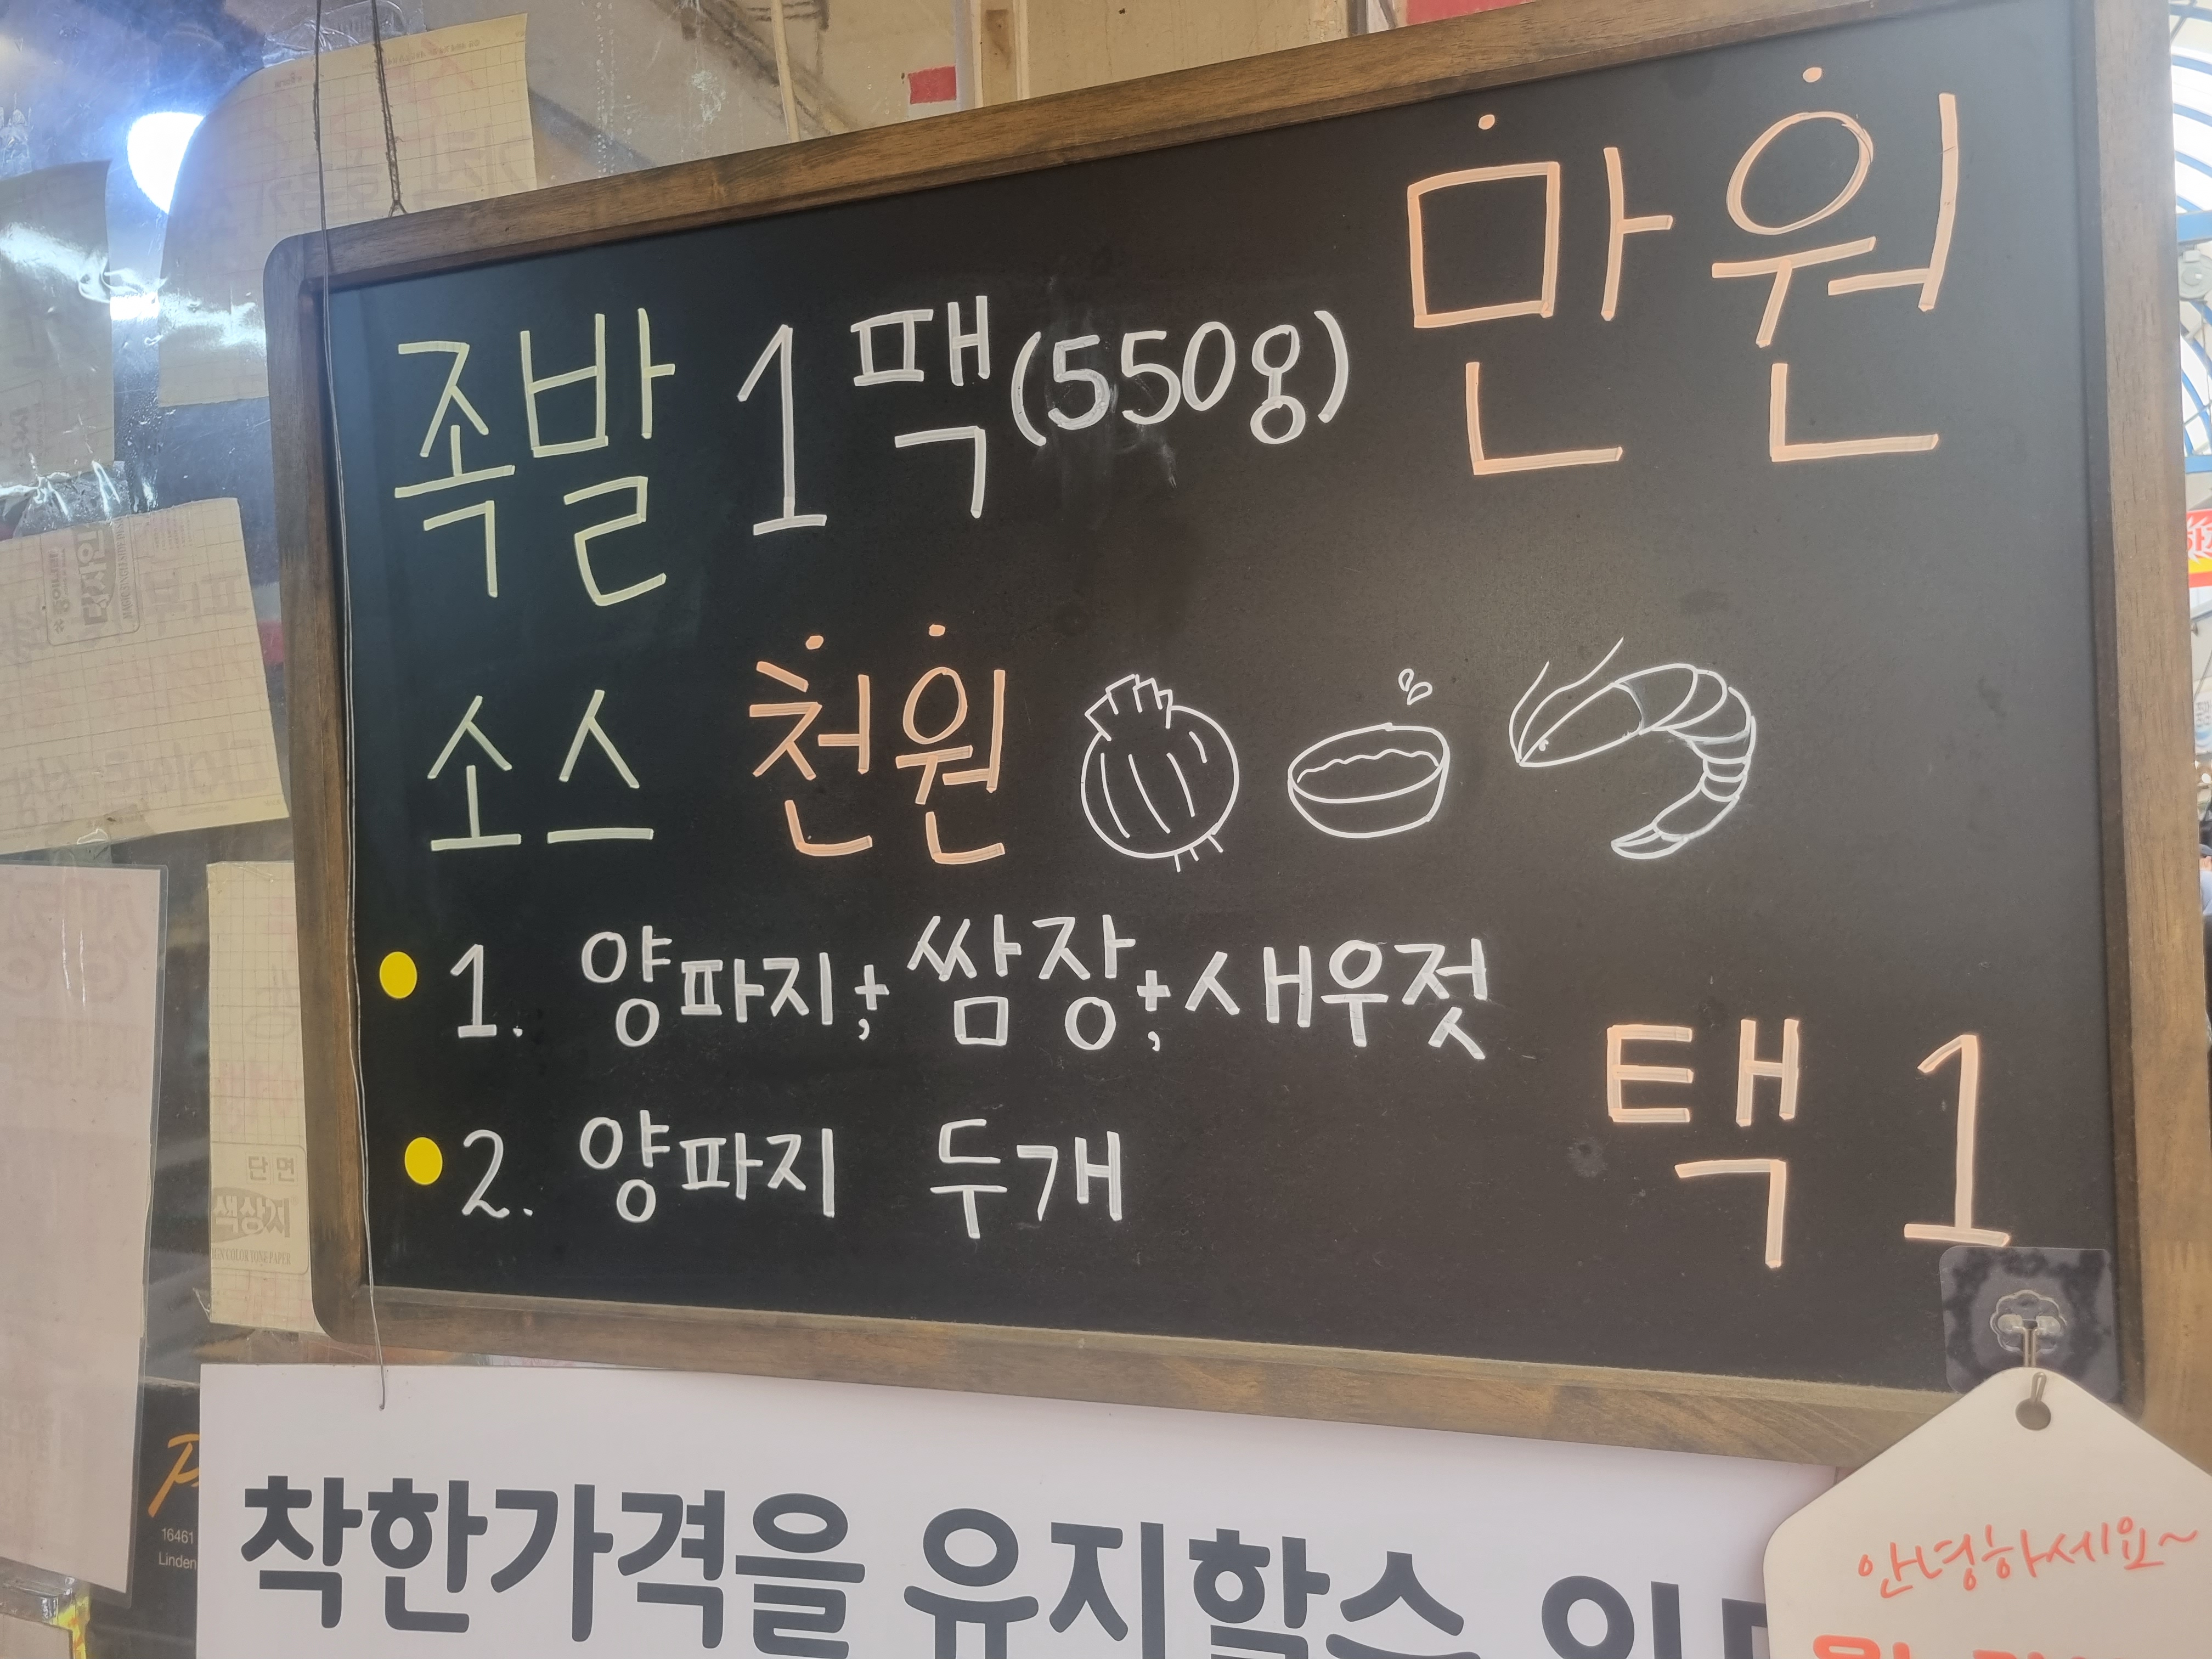 족발 1팩(550g) 만원
소스 천원
1. 양파지; + 쌈장; + 새우젓
2. 양파지 두개
택 1
착한가격을 유지할수
안녕하세요~
단면
색상지
16461
Linden